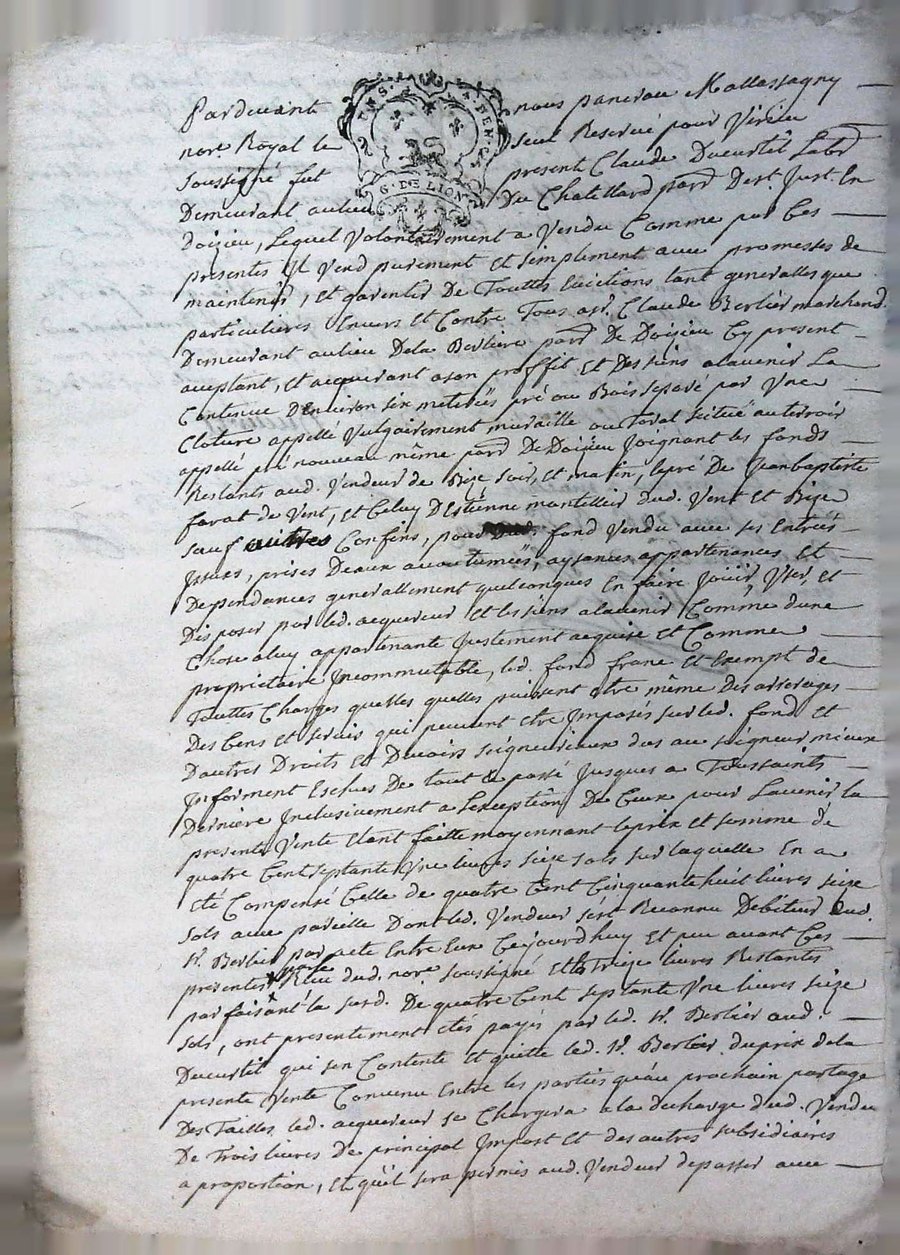 Pardevant nous pancrau Mallassagny
nore. Royal le seul Reservé pour Virieu
soussigné fut present Claude Ducurtil Labr
Demeurant au lieu Du Chatellard parr. Dest. Just. En
Doizieu, Lequel Volontairement a Vendu Comme par Ces
presentes Il Vend purement Et simplement avec promesses de
maintenir, et garentir De Touttes Evictions tant generalles que
particulieres Envers Et Contre Tous a sr. Claude Berlier marchand
Demeurant au lieu Dela Berliere parr. De Doizieu Cy present
aceptant, Et acquerant a son proffit Et Des siens a lavenir La
Contenue Denviron six meterées pré ou Bois separé par Une
Cloture appellé Vulgairement muraille ou toral scitué au terroir
appellé pré nouveau même parr. De Doizieu Joignant les fonds
Restants aud. Vendeur de Bize soir, et matin, le pré De Jean baptiste
farat de Vent, et Celuy D'Estienne mantellier Dud. Vent Et Bize
sauf autres Confins, pour fond Vendu avec ses Entrées
Issues, prises Deaux accoutumées, aysances appartenances Et
Dependances generallement quelconques En faire Jouir User, et
Disposer par led. acquereur Et les siens a lavenir Comme dune
Chose a luy appartenante Justement acquise et Comme
proprietaire Incommutable, led. fond franc Et Exempt de
Touttes Charges quelles quelles puissent etre même Des arrerages
Des Cens et servis qui peuvent etre Imposés sur led. fond et
Dautres Droits Et Devoirs seigneuriaux dus au seigneur mieux
Informent Eschus De tout le passé Jusques a Toussaints
Derniere Inclusivement a Lexception De Ceux pour Lavenir la
presente Vente Etant faitte moyennant le prix et somme de
quatre Cent septante Une livres seize sols sur laquelle En a
eté Compensé Celle de quatre Cent Cinquante huit livres seize
sols avec pareille Dont led. Vendeur s'est Reconnu Debiteur Aud.
sr. Berlier par acte Entre Eux Cejourdhuy Et peu avant Ces
presentes Reçu dud. nore. soussigné Et les treize livres Restantes
parfaisant la susd. De quatre Cent septante Une livres seize
sols, ont presentement etés payés par led. sr. Berlier aud.
Ducurtil qui sen Contente Et quitte led. sr. Berlier du prix de la
presente Vente Convenu Entre les parties quau prochain partage
Des Tailles led. acquereur se Chargera a la decharge dud. Vendeur
De Trois livres de principal Impost Et des autres subsidiaires
a proportion, Et qu'il sera permis aud. Vendeur de passer avec